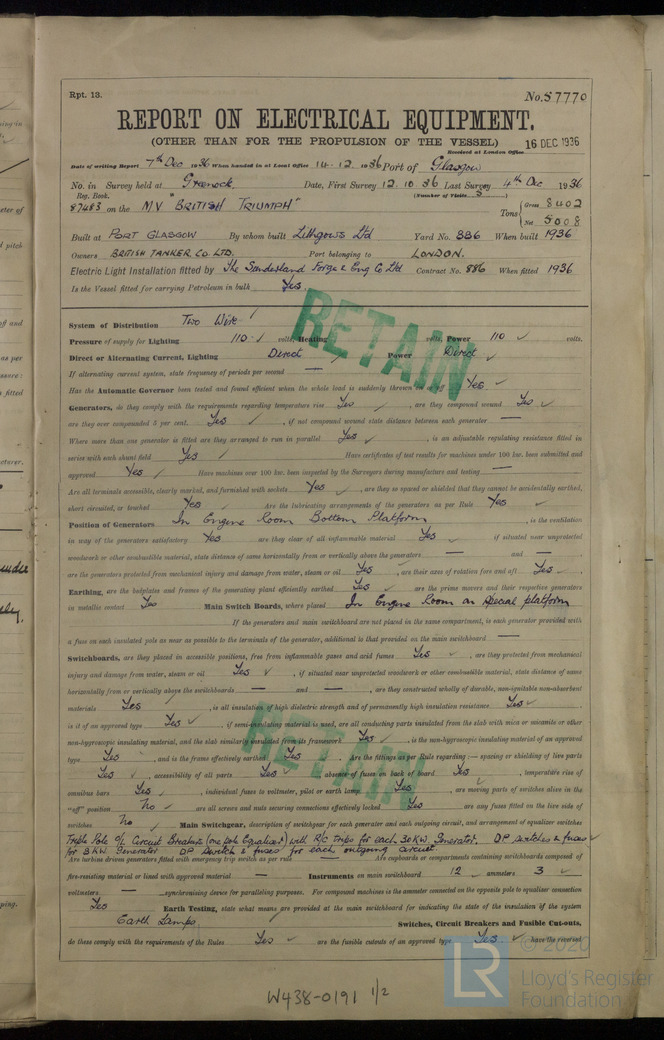 Rpt. 13.
No. 57770
REPORT ON ELECTRICAL EQUIPMENT.
(OTHER THAN FOR THE PROPULSION OF THE VESSEL)
16 DEC 1936
Received at London Office
Date of writing Report 7th Dec 1936 When handed in at Local Office 14.12.1936 Port of Glasgow
No. in Survey held at Greenock Date, First Survey 12.10.36 Last Survey 4th Dec 1936
Reg. Book. (Number of Visits 5)
87483 on the MV "BRITISH TRIUMPH" Tons { Gross 8402
Net 5008
Built at PORT GLASGOW By whom built Lithgows Ltd Yard No. 886 When built 1936
Owners BRITISH TANKER CO LTD. Port belonging to LONDON.
Electric Light Installation fitted by The Sunderland Forge & Eng Co Ltd Contract No. 886 When fitted 1936
Is the Vessel fitted for carrying Petroleum in bulk Yes.
System of Distribution Two Wire
Pressure of supply for Lighting 110 volts, Heating volts, Power 110 volts.
Direct or Alternating Current, Lighting Direct Power Direct
If alternating current system, state frequency of periods per second —
Has the Automatic Governor been tested and found efficient when the whole load is suddenly thrown on and off Yes
Generators, do they comply with the requirements regarding temperature rise Yes, are they compound wound Yes
are they over compounded 5 per cent. Yes, if not compound wound state distance between each generator —
Where more than one generator is fitted are they arranged to run in parallel Yes, is an adjustable regulating resistance fitted in
series with each shunt field Yes Have certificates of test results for machines under 100 kw. been submitted and
approved Yes Have machines over 100 kw. been inspected by the Surveyors during manufacture and testing —
Are all terminals accessible, clearly marked, and furnished with sockets Yes, are they so spaced or shielded that they cannot be accidentally earthed,
short circuited, or touched Yes Are the lubricating arrangements of the generators as per Rule Yes
Position of Generators In Engine Room Bottom Platform, is the ventilation
in way of the generators satisfactory Yes are they clear of all inflammable material Yes if situated near unprotected
woodwork or other combustible material, state distance of same horizontally from or vertically above the generators — and —
are the generators protected from mechanical injury and damage from water, steam or oil Yes, are their axes of rotation fore and aft Yes
Earthing, are the bedplates and frames of the generating plant efficiently earthed Yes are the prime movers and their respective generators
in metallic contact Yes Main Switch Boards, where placed In Engine Room on special platform
If the generators and main switchboard are not placed in the same compartment, is each generator provided with
a fuse on each insulated pole as near as possible to the terminals of the generator, additional to that provided on the main switchboard —
Switchboards, are they placed in accessible positions, free from inflammable gases and acid fumes Yes, are they protected from mechanical
injury and damage from water, steam or oil Yes, if situated near unprotected woodwork or other combustible material, state distance of same
horizontally from or vertically above the switchboards — and —, are they constructed wholly of durable, non-ignitable non-absorbent
materials Yes, is all insulation of high dielectric strength and of permanently high insulation resistance Yes
is it of an approved type Yes, if semi-insulating material is used, are all conducting parts insulated from the slab with mica or micanite or other
non-hygroscopic insulating material, and the slab similarly insulated from its framework Yes, is the non-hygroscopic insulating material of an approved
type Yes, and is the frame effectively earthed Yes. Are the fittings as per Rule regarding :— spacing or shielding of live parts
Yes, accessibility of all parts Yes absence of fuses on back of board Yes, temperature rise of
omnibus bars Yes, individual fuses to voltmeter, pilot or earth lamp Yes, are moving parts of switches alive in the
"off" position No are all screws and nuts securing connections effectively locked Yes are any fuses fitted on the live side of
switches No Main Switchgear, description of switchgear for each generator and each outgoing circuit, and arrangement of equaliser switches
Triple Pole O/L Circuit Breakers (one pole Equaliser) with R/C trips for each 30KW Generator. DP switches & fuses
for 8KW Generator DP switch & fuses for each outgoing circuit
Are turbine driven generators fitted with emergency trip switch as per rule Are cupboards or compartments containing switchboards composed of
fire-resisting material or lined with approved material — Instruments on main switchboard 12 ammeters 3
voltmeters — synchronising device for paralleling purposes. For compound machines is the ammeter connected on the opposite pole to equaliser connection
Yes Earth Testing, state what means are provided at the main switchboard for indicating the state of the insulation of the system
Earth Lamps. Switches, Circuit Breakers and Fusible Cut-outs,
do these comply with the requirements of the Rules Yes are the fusible cutouts of an approved type Yes have the reversed
RETAIN
RETAIN
W438-0191 1/2
LR
© 2020
Lloyd's Register
Foundation